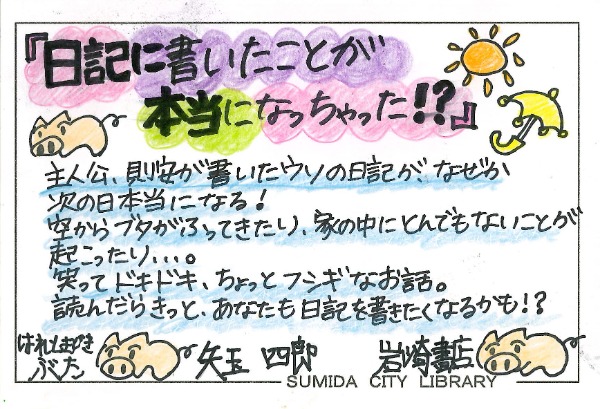 『日記に書いたことが
本当になっちゃった!?』
主人公、則安が書いたウソの日記が、なぜか
次の日本当になる!
空からブタがふってきたり、家の中にとんでもないことが
起こったり...。
笑ってドキドキ、ちょっとフシギなお話。
読んだらきっと、あなたも日記を書きたくなるかも!?
はれときどき
ぶた
矢玉 四郎 岩崎書店
SUMIDA CITY LIBRARY